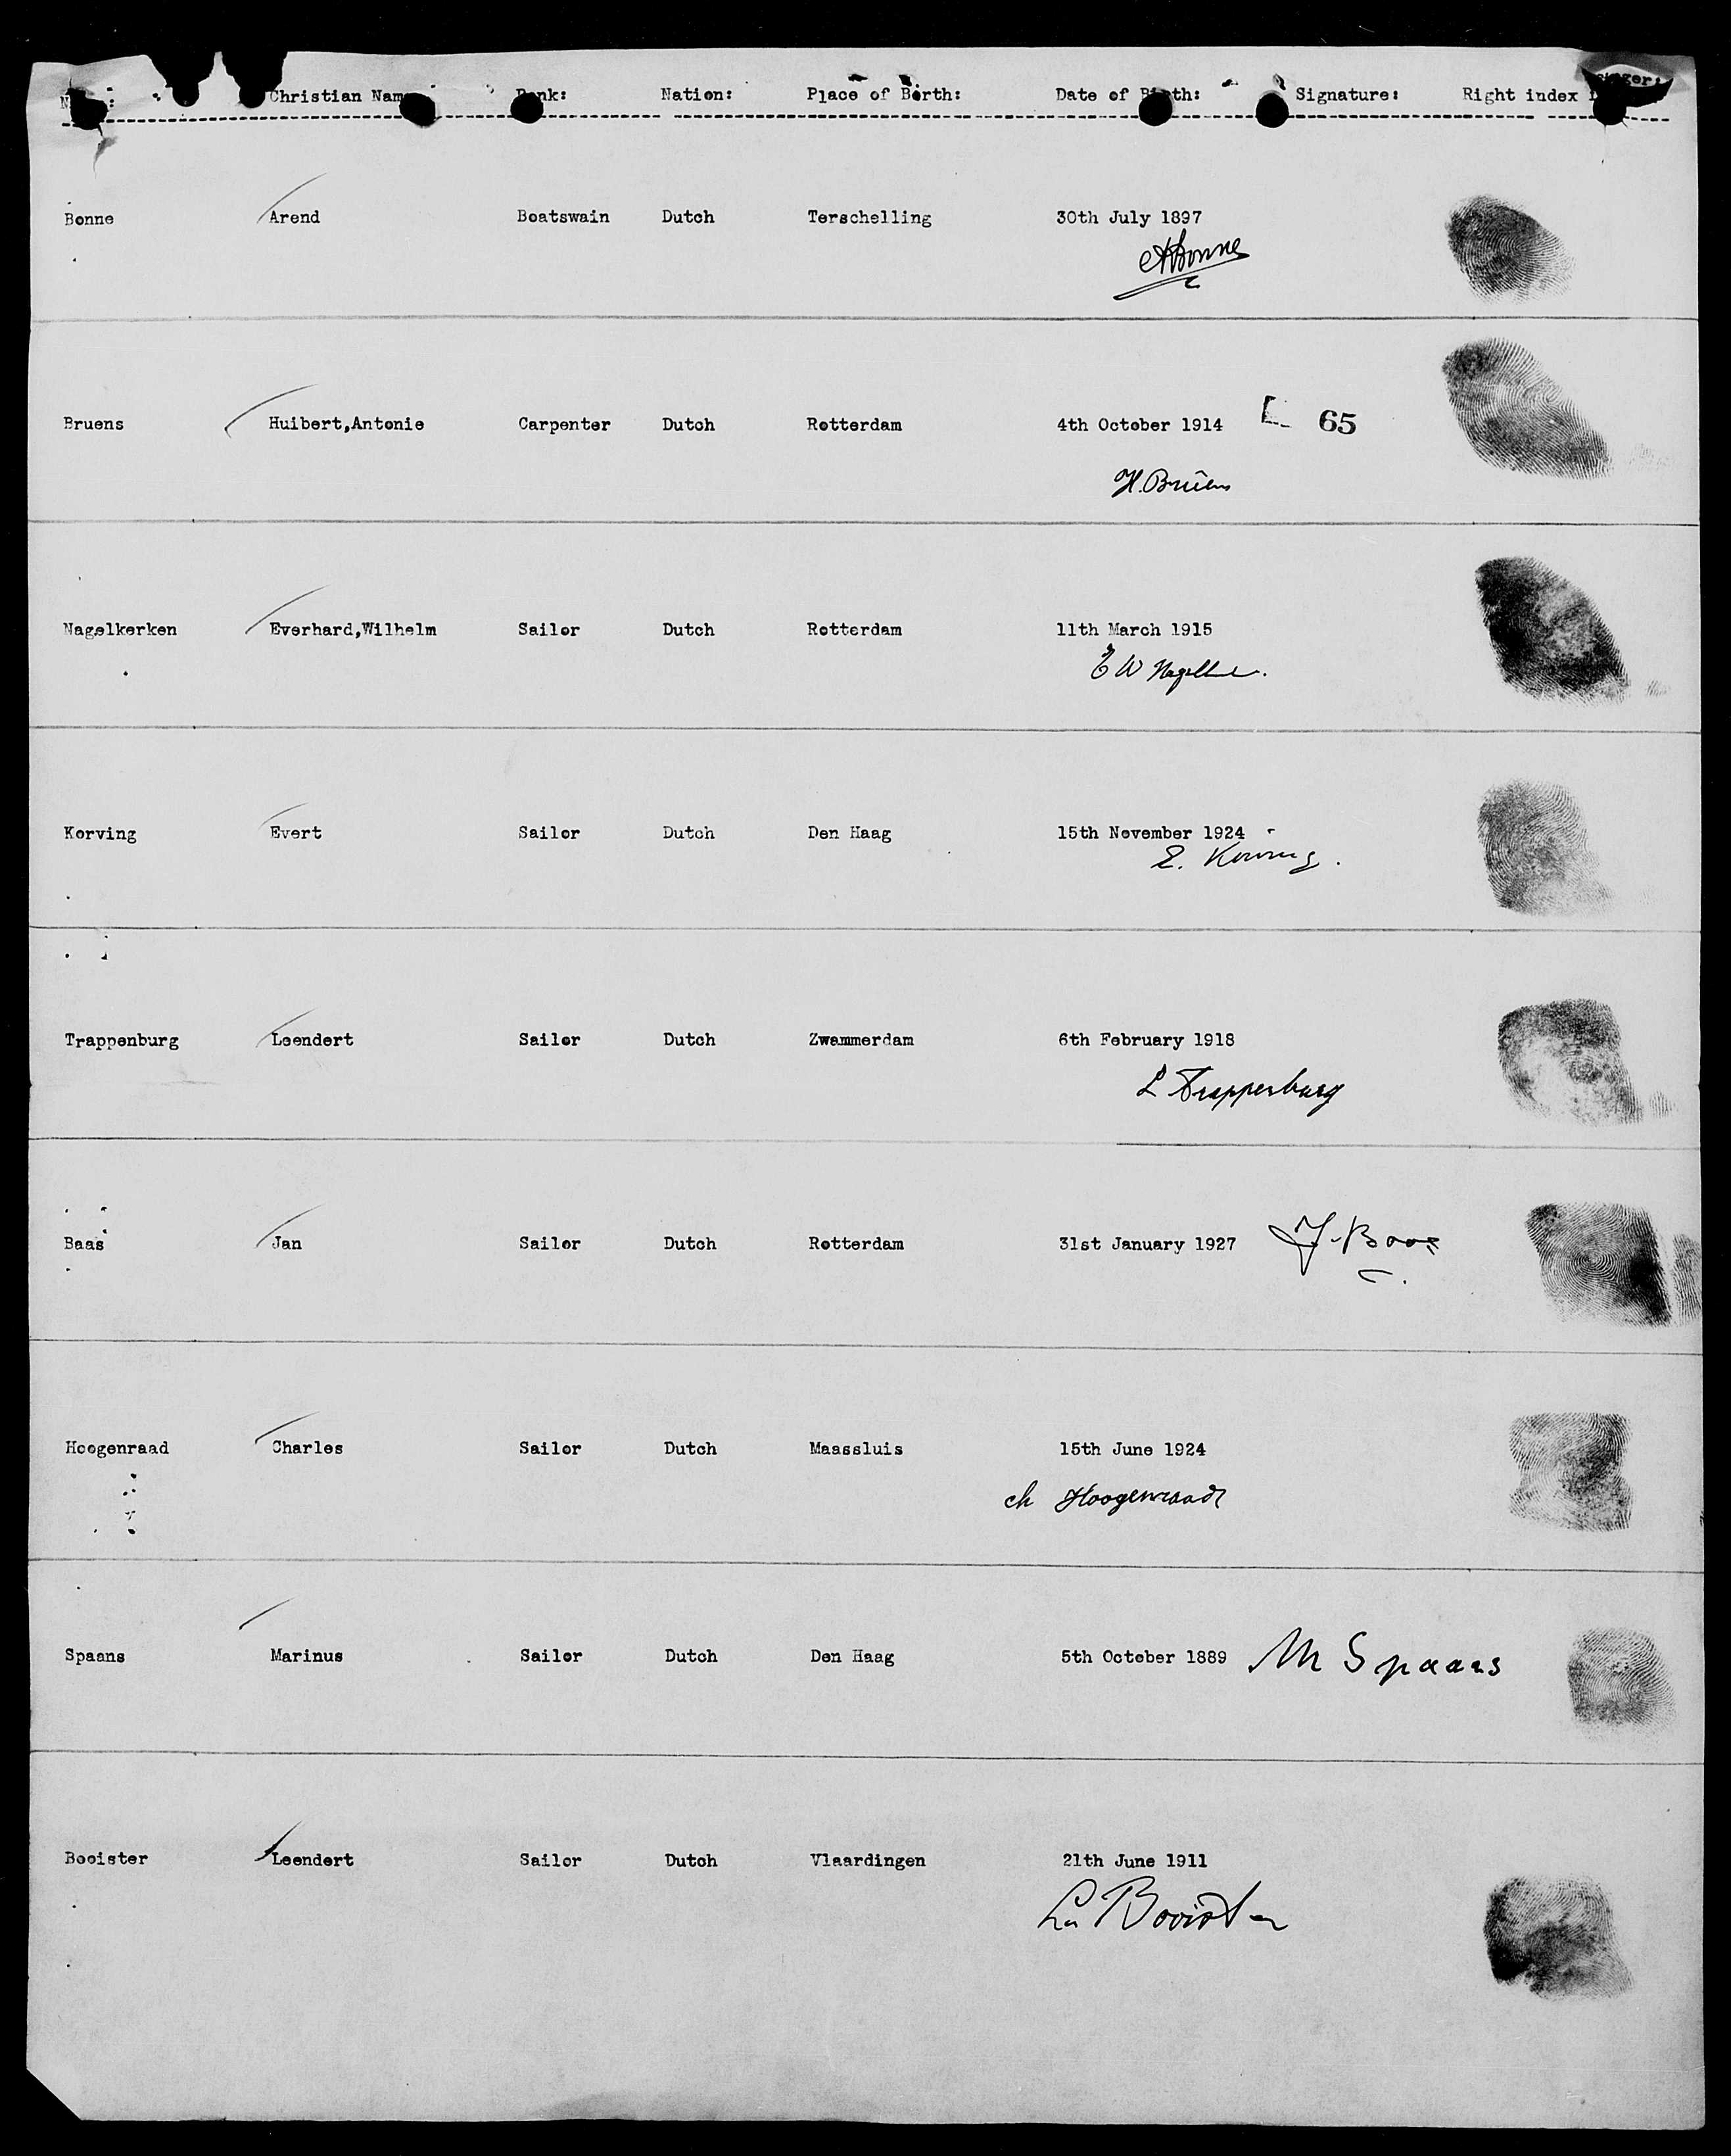 Christian Name Rank: Nation: Place of Birth: Date of Birth: Signature: Right index
Bonne Arend Boatswain Dutch Terschelling 30th July 1897
ABonne
Bruens Huibert,Antonie Carpenter Dutch Rotterdam 4th October 1914 65
H.Bruens
Nagelkerken Everhard,Wilhelm Sailor Dutch Rotterdam 11th March 1915
E W
Korving Evert Sailor Dutch Den Haag 15th November 1924
E. Korving.
Trappenburg Leendert Sailor Dutch Zwammerdam 6th February 1918
L Trappenburg
Baas Jan Sailor Dutch Rotterdam 31st January 1927 J. Baas
Hoogenraad Charles Sailor Dutch Maassluis 15th June 1924
ch Hoogenraad
Spaans Marinus Sailor Dutch Den Haag 5th October 1889 M Spaans
Booister Leendert Sailor Dutch Vlaardingen 21th June 1911
Booister